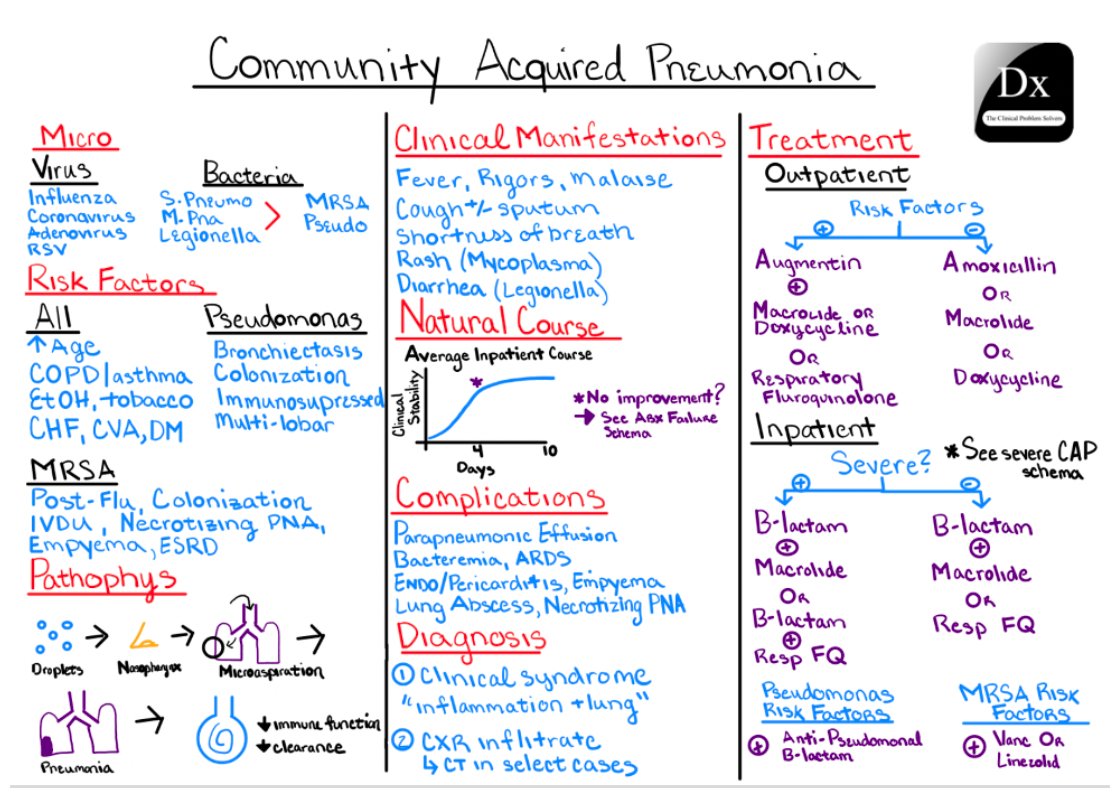 Community Acquired Pneumonia
Dx
The Clinical Problem Solvers
Micro
Virus
Influenza
Coronavirus
Adenovirus
RSV
Bacteria
S. Pneumo
M. Pna
Legionella
>
MRSA
Pseudo
Risk Factors
All
↑ Age
COPD/asthma
EtOH, tobacco
CHF, CVA, DM
Pseudomonas
Bronchiectasis
Colonization
Immunosupressed
Multi-lobar
MRSA
Post-Flu, Colonization
IVDU, Necrotizing PNA,
Empyema, ESRD
Pathophys
Droplets
Nasopharynx
Microaspiration
Pneumonia
↓ immune function
↓ clearance
Clinical Manifestations
Fever, Rigors, malaise
Cough +/- sputum
Shortness of breath
Rash (Mycoplasma)
Diarrhea (Legionella)
Natural Course
Average Inpatient Course
Clinical
Stability
*
4
10
Days
*No improvement?
→ See Abx Failure
Schema
Complications
Parapneumonic Effusion
Bacteremia, ARDS
Endo/Pericarditis, Empyema
Lung Abscess, Necrotizing PNA
Diagnosis
① Clinical syndrome
"inflammation + lung"
② CXR inflitrate
↳ CT in select cases
Treatment
Outpatient
Risk Factors
⊕
⊖
Augmentin
⊕
Macrolide or
Doxycycline
OR
Respiratory
Fluroquinolone
Amoxicillin
OR
Macrolide
OR
Doxycycline
Inpatient
*See severe CAP
schema
Severe?
⊕
⊖
B-lactam
⊕
Macrolide
OR
B-lactam
⊕
Resp FQ
B-lactam
⊕
Macrolide
OR
Resp FQ
Pseudomonas
Risk Factors
⊕ Anti-Pseudomonal
B-lactam
MRSA Risk
Factors
⊕ Vanc OR
Linezolid